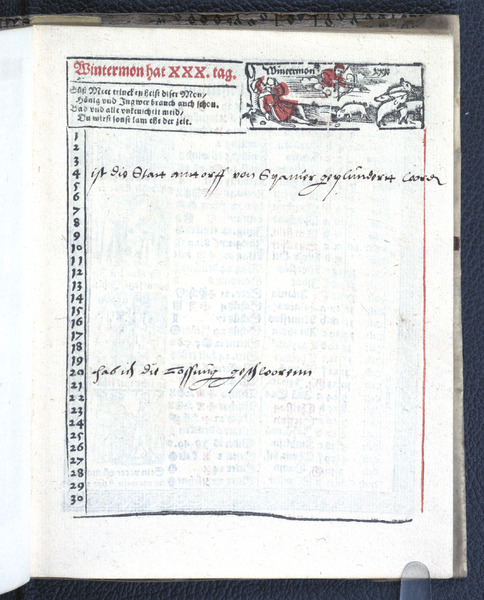 Wintermon hat XXX. tag.
Süß Mett trincken heist diser Mon/
Hönig vnd Ingwer brauch auch schon.
Bad vnd alle vnkeuscheit meid/
Du wirst sonst lam ehe der zeit.
Wintermon XXX
1
2
3
4 ist die Statt antorff von Spanier geplündertt word
5
6
7
8
9
10
11
12
13
14
15
16
17
18
19
20 hab ich die geschworenn
21
22
23
24
25
26
27
28
29
30